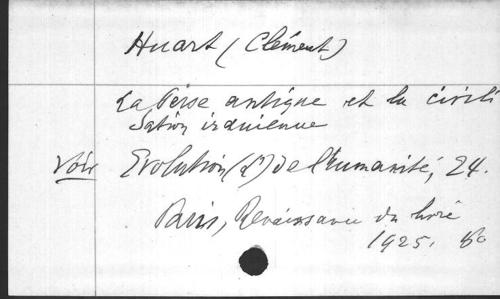 Huart (Clément)
La Perse antique et la civili
sation iranienne
Voir Evolution (L') de l'humanité, 24.
Paris, Renaissance du livre
1925. 8o